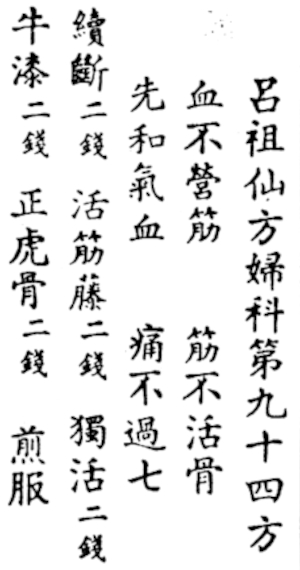 呂祖仙方婦科第九十四方
血不營筋 筋不活骨
先和氣血 痛不過七
續斷二錢 活筋藤二錢 獨活二錢
牛漆二錢 正虎骨二錢 煎服